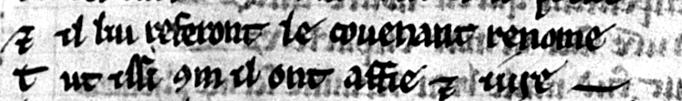 ⁊ il lui referont le couenant renome
T ut issi ꝯm il ont affie ⁊ iure